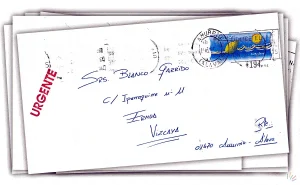 URGENTE
Srs. Blanco Garrido
C/ Iparraguirre nº 11
Ermua
Vizcaya
Rte.
01470 Amurrio - Álava